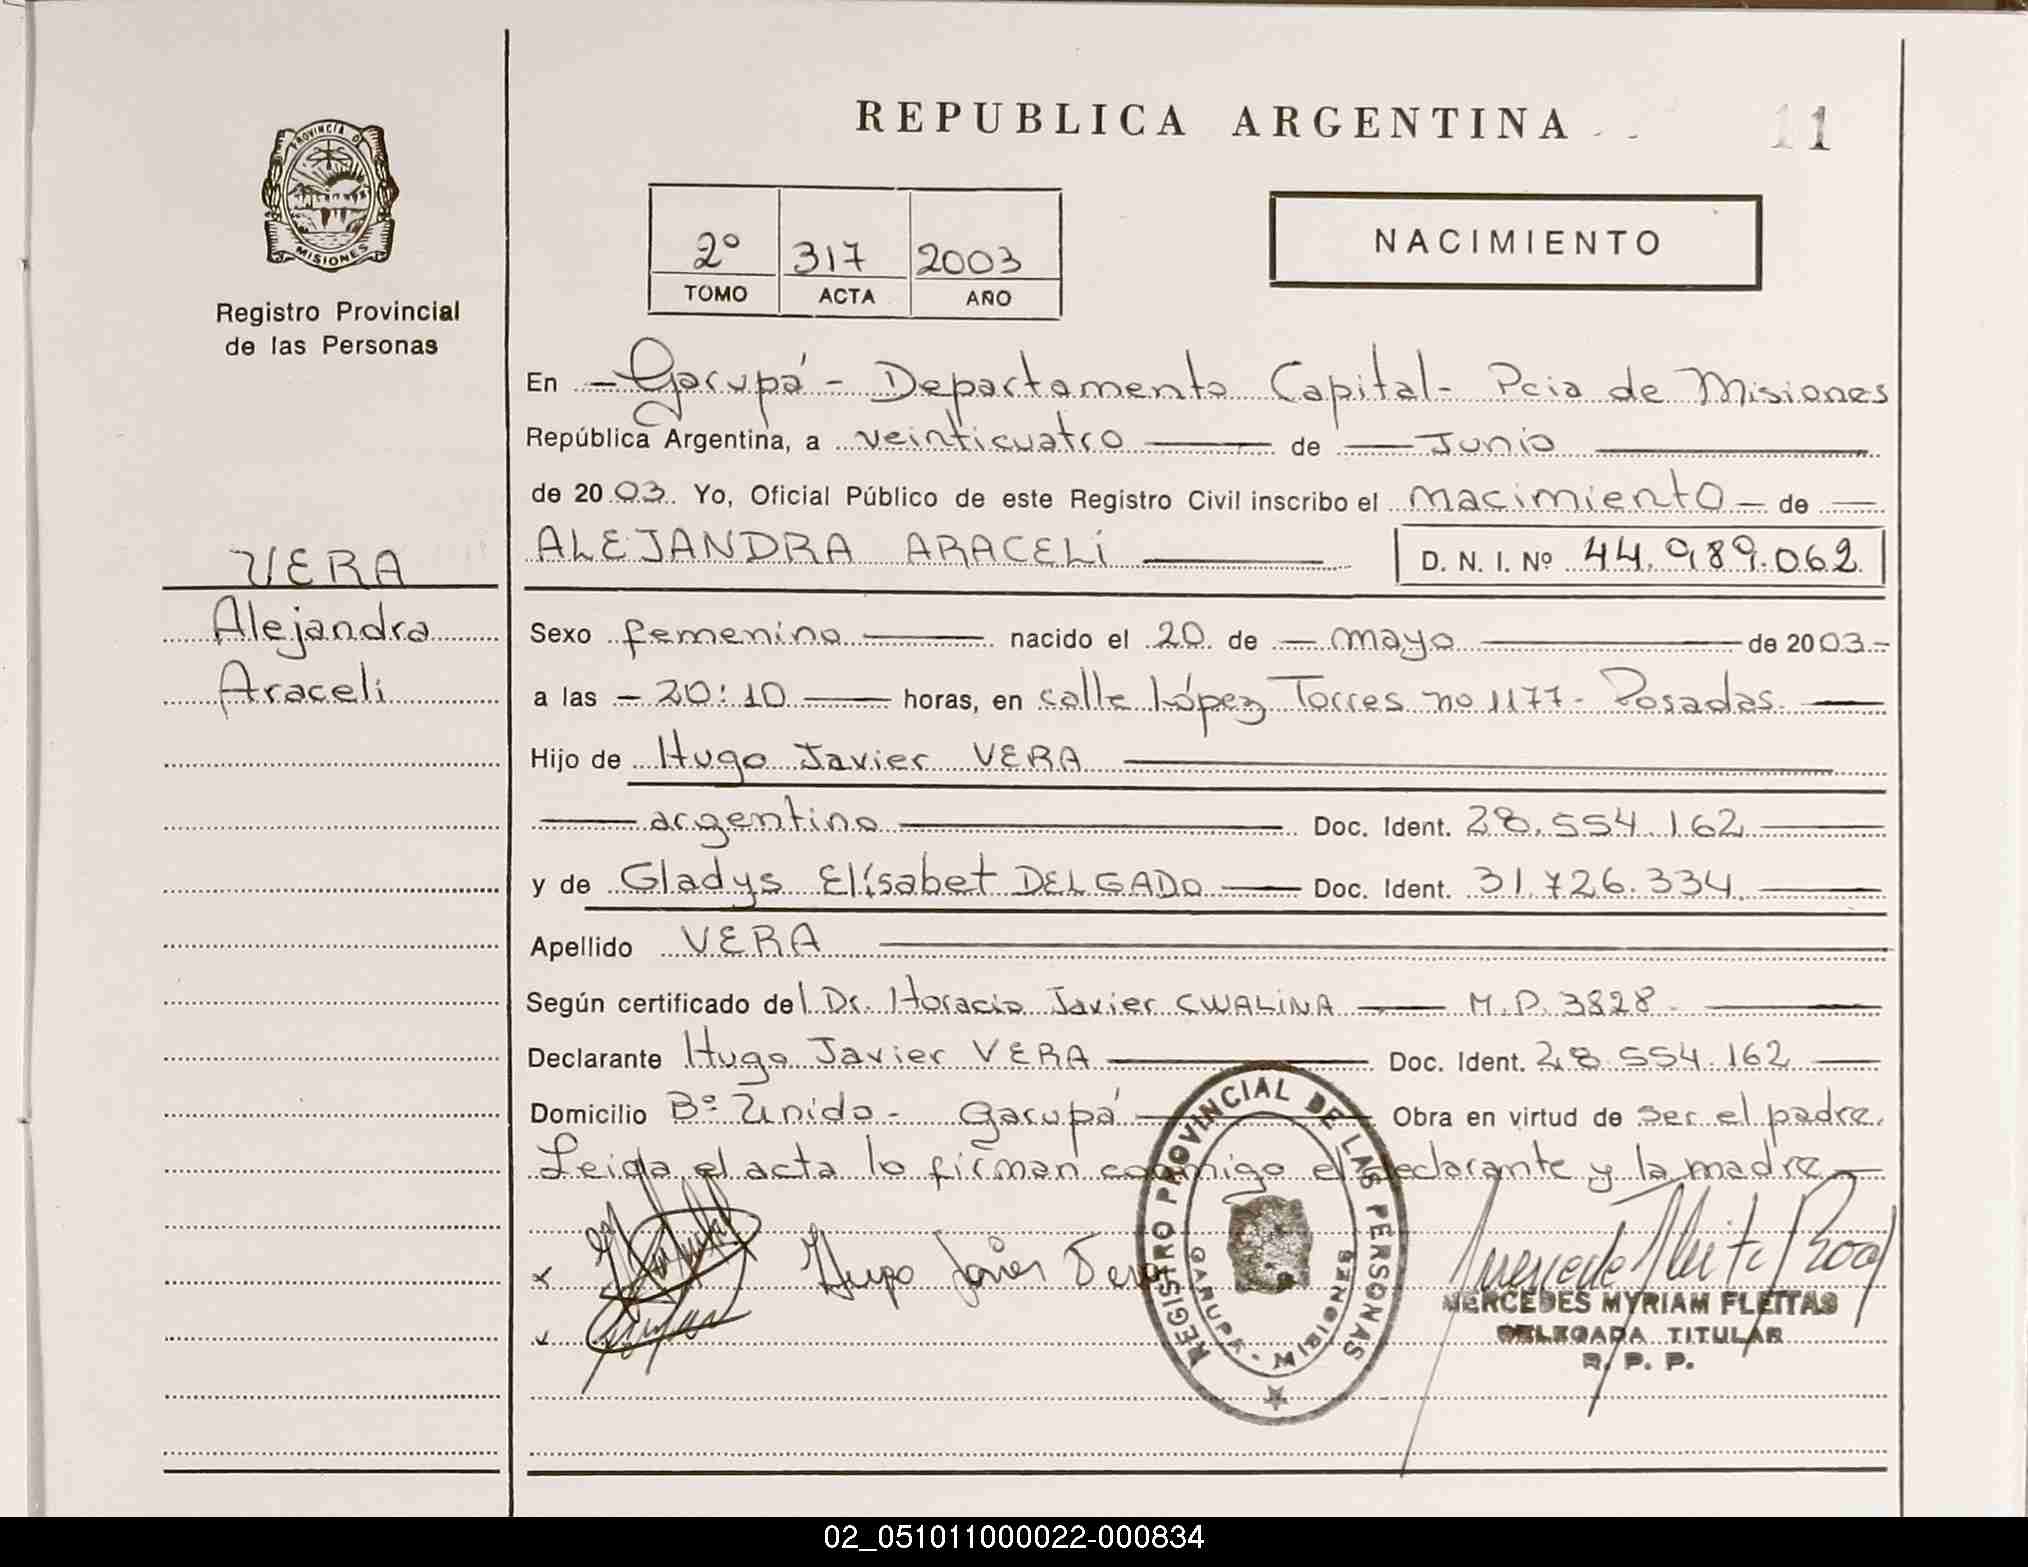 REPUBLICA ARGENTINA
11
PROVINCIA D
MISIONES
Registro Provincial
de las Personas
2º 317 2003
TOMO ACTA AÑO
NACIMIENTO
En - Garupá - Departamento Capital - Pcia de Misiones
República Argentina, a veinticuatro de Junio
de 2003. Yo, Oficial Público de este Registro Civil inscribo el nacimiento - de
ALEJANDRA ARACELi D. N. I. Nº 44.989.062
VERA
Alejandra
Araceli
Sexo femenino nacido el 20 de mayo de 2003-
a las - 20:10 horas, en calle López Torres no 1177 - Posadas.
Hijo de Hugo Javier VERA
argentino Doc. Ident. 28.554.162
y de Gladys Elísabet DELGADO Doc. Ident. 31.726.334.
Apellido VERA
Según certificado del Dr. Horacio Javier CWALiNA M.P. 3828
Declarante Hugo Javier VERA Doc. Ident. 28.554.162
Domicilio Bº Unido - Garupá Obra en virtud de ser el padre.
Leida el acta lo firman conmigo el declarante y la madre
Hugo Javier Vera
REGISTRO PROVINCIAL DE LAS PERSONAS
GARUPA - MISIONES
MERCEDES MYRIAM FLEITAS
DELEGADA TITULAR
R. P. P.
02_051011000022-000834